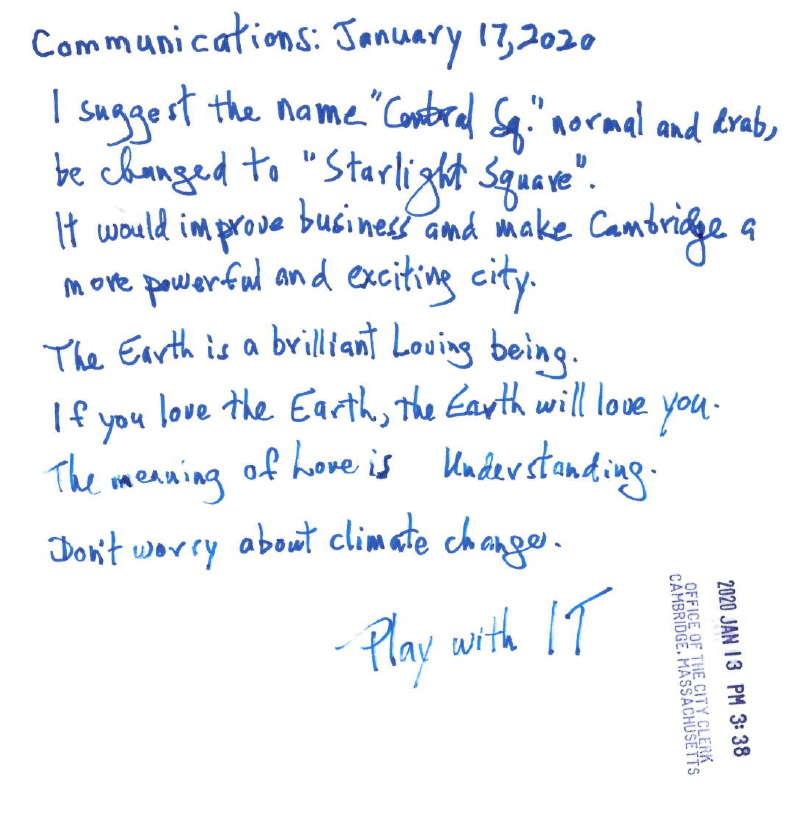 Communications: January 17, 2020
I suggest the name "Central Sq." normal and drab,
be changed to "Starlight Square".
It would improve business and make Cambridge a
more powerful and exciting city.
The Earth is a brilliant Loving being.
If you love the Earth, the Earth will love you.
The meaning of Love is Understanding.
Don't worry about climate change.
Play with IT
2020 JAN 13 PM 3:38
OFFICE OF THE CITY CLERK
CAMBRIDGE, MASSACHUSETTS